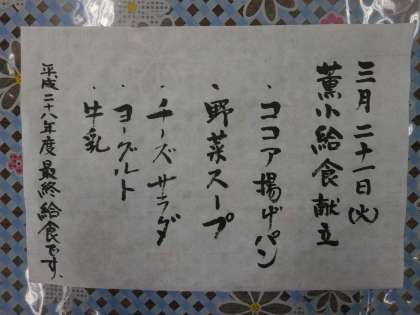 三月二十一日(火)
薫小給食献立
・ココア揚げパン
・野菜スープ
・チーズサラダ
・ヨーグルト
・牛乳
平成二十八年度最終給食です。